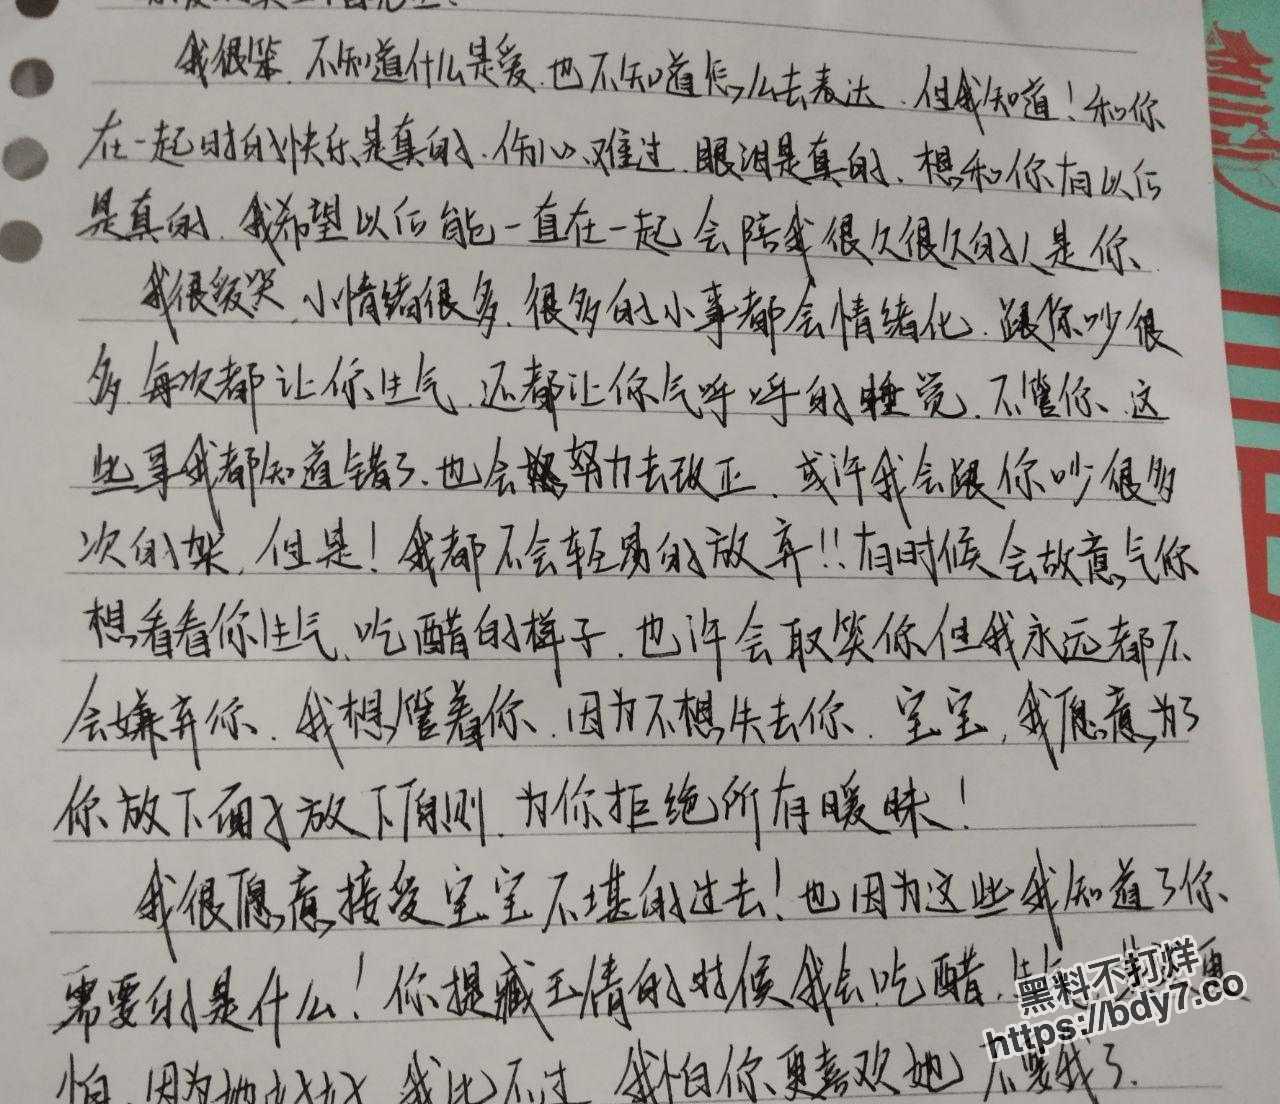 我很笨.不知道什么是爱.也不知道怎么去表达.但我知道!和你
在一起时的快乐是真的.伤心、难过.眼泪是真的.想和你有以后
是真的.我希望以后能一直在一起会陪我很久很久的人是你.
我很爱哭.小情绪很多.很多的小事都会情绪化.跟你吵很
多.每次都让你生气.还都让你气呼呼的睡觉.不管你.这
些事我都知道错了.也会努力去改正.或许我会跟你吵很多
次的架.但是!我都不会轻易的放弃!!有时候会故意气你
想看看你生气、吃醋的样子.也许会取笑你但我永远都不
会嫌弃你.我想管着你.因为不想失去你.宝宝,我愿意为了
你放下面子放下原则.为你拒绝所有暧昧!
我很愿意接受宝宝不堪的过去!也因为这些我知道了你
需要的是什么!你提臧玉倩的时候我会吃醋.生气
怕.因为她 我比不过.我怕你更喜欢她 不要我了.
黑料不打烊
https://bdy7.co